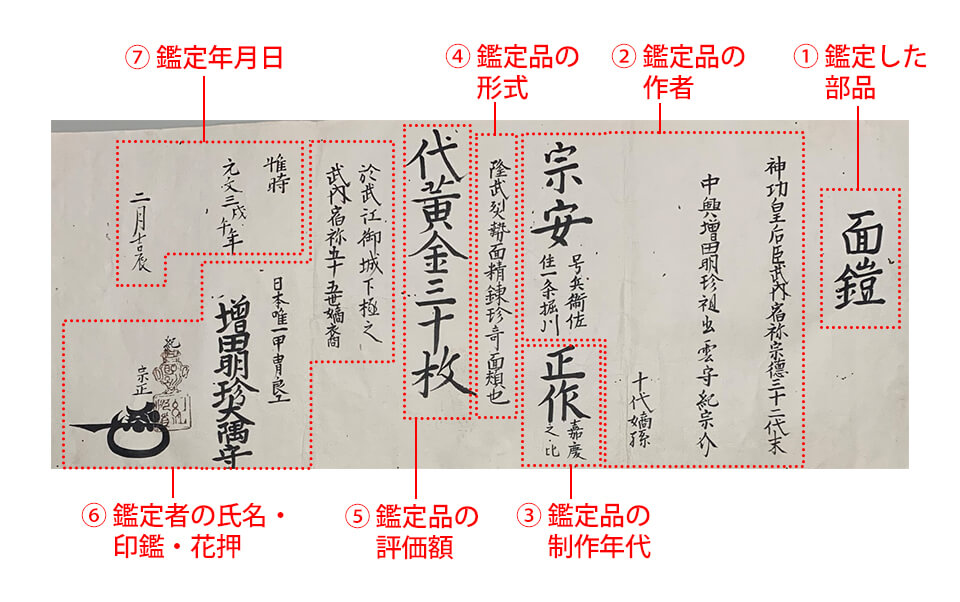 ① 鑑定した
部品
② 鑑定品の
作者
④ 鑑定品の
形式
⑦ 鑑定年月日
面鎧
神功皇后臣武内宿祢宗德三十二代末
中興増田明珍祖出雲守紀宗介
十代嫡孫
宗安
号兵衞佐
住一条掘川
正作
嘉慶
之比
隆武烈勢面精錬珍奇面頬也
代黄金三十枚
於武江御城下極之
武内宿祢五十五世嫡裔
日本唯一甲冑良工
増田明珍大隅守
紀
宗正
惟時
元文三戊午年
二月吉辰
③ 鑑定品の
制作年代
⑤ 鑑定品の
評価額
⑥ 鑑定者の氏名・
印鑑・花押